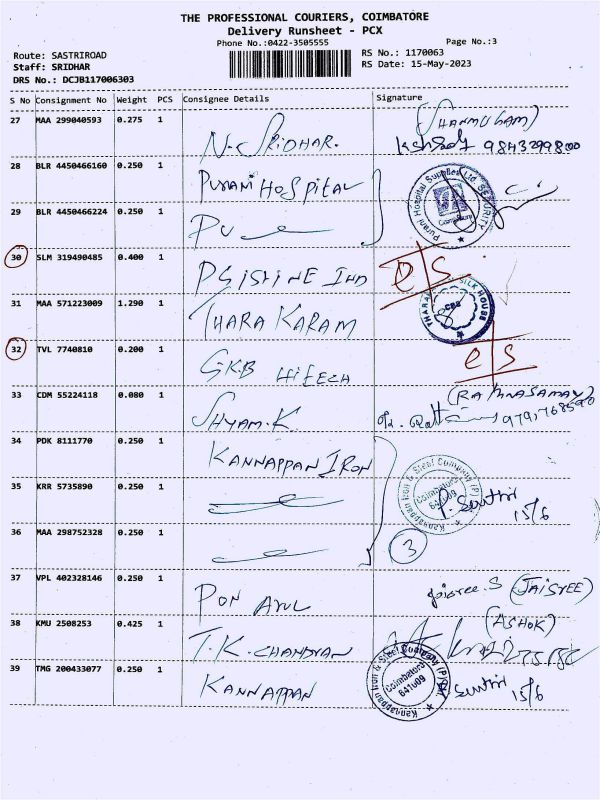 THE PROFESSIONAL COURIERS, COIMBATORE
Delivery Runsheet - PCX
Phone No.:0422-3505555
Page No.:3
Route: SASTRIROAD
Staff: SRIDHAR
DRS No.: DCJB117006303
RS No.: 1170063
RS Date: 15-May-2023
S No Consignment No Weight PCS Consignee Details Signature
27 MAA 299040593 0.275 1 N. SRIDHAR. (SHANMUGAM)
28 BLR 4450466160 0.250 1 PURANI HOSPITAL
Purani Hospital Supplies Ltd SECURITY
29 BLR 4450466224 0.250 1 PU
30 SLM 319490485 0.400 1 PSISTINE IND
31 MAA 571223009 1.290 1 THARA KARAM
SILK HOUSE
CBE
32 TVL 7740810 0.200 1 GKB HITECH
33 CDM 55224118 0.080 1 SHYAM.K. (RATHNASAMAY)
34 PDK 8111770 0.250 1 KANNAPPAN IRON
Kannappan Iron & Steel Company (P)
Coimbatore
641009
35 KRR 5735890 0.250 1
15/6
36 MAA 298752328 0.250 1
3
37 VPL 402328146 0.250 1 PON ARUL Jaisree.S (JAISREE)
38 KMU 2508253 0.425 1 T.K. CHANDRAN (ASHOK)
39 TMG 200433077 0.250 1 KANNAPPAN
Kannappan Iron & Steel Company (P)
Coimbatore
641009
15/6